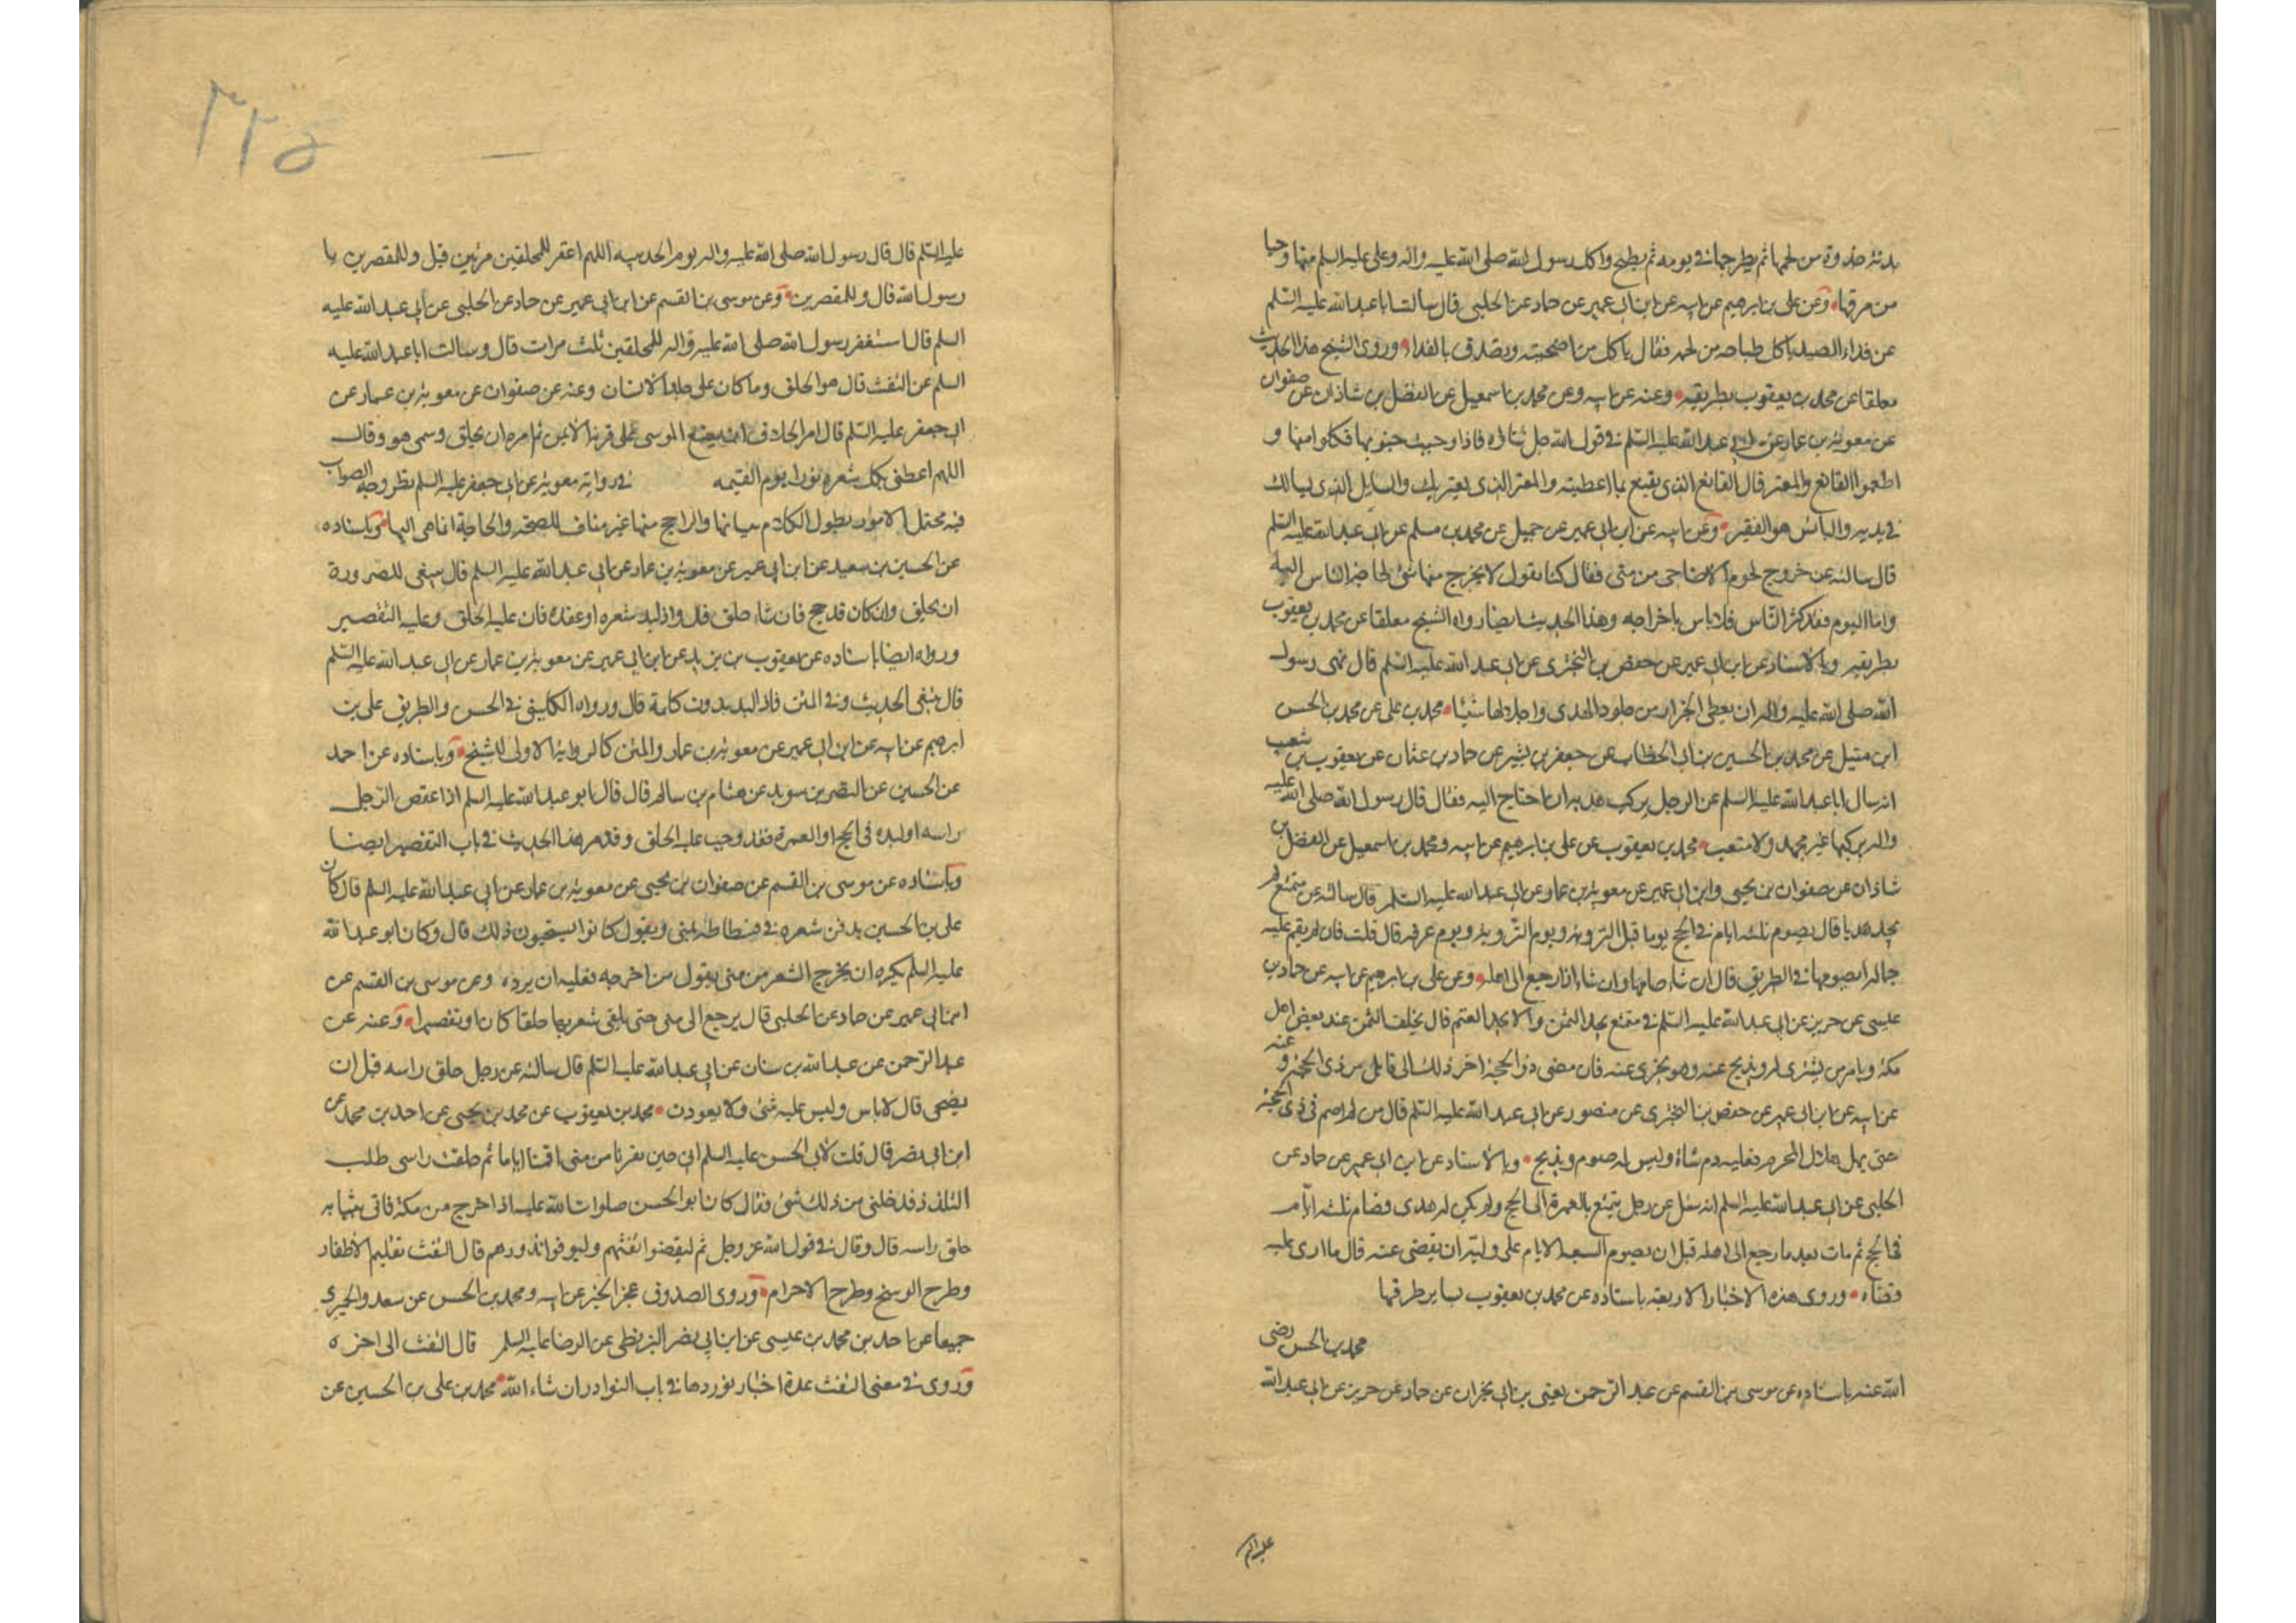 بدنة جذوة من لحمها ثم يطرحها في برمه ثم يطبخ واكل رسول الله صلى الله عليه واله وعلي عليه السلم منها وحيا
من مرقها وعن علي بن ابرهيم عن ابيه عن ابن ابي عمير عن حماد عن الحلبي قال سالت ابا عبد الله عليه السلم
عن فداء الصيد ياكل صاحبه من لحمه فقال ياكل من اضحيته ويتصدق بالفداء وروى الشيخ هذا الحديث
معلقا عن محمد بن يعقوب بطريقه وعنه عن ابيه وعن محمد بن اسمعيل عن الفضل بن شاذان عن صفوان
عن معوية بن عمار عن ابي عبد الله عليه السلم في قول الله جل ثناؤه فاذا وجبت جنوبها فكلوا منها و
اطعموا القانع والمعتر قال القانع الذي يقنع بما اعطيته والمعتر الذي يعتريك والسايل الذي يسالك
في يديه والبائس هو الفقير وعن ابيه عن ابن ابي عمير عن جميل عن محمد بن مسلم عن ابي عبد الله عليه السلم
قال سالته عن خروج لحوم الاضاحي من منى فقال كنا نقول لا يخرج منها شئ لحاجة الناس اليه
واما اليوم فقد كثر الناس فلا باس باخراجه وهذا الحديث ايضا رواه الشيخ معلقا عن محمد بن يعقوب
بطريقه وبالاسناد عن ابن ابي عمير عن حفص بن البختري عن ابي عبد الله عليه السلم قال نهى رسول
الله صلى الله عليه واله ان يعطى الجزار من جلود الهدي واجلالها شيئا محمد بن علي عن محمد بن الحسن
ابن متيل عن محمد بن الحسين بن ابي الخطاب عن جعفر بن بشير عن حماد بن عثمان عن يعقوب بن شعيب
انه سال ابا عبد الله عليه السلم عن الرجل يركب هديه ان احتاج اليه فقال قال رسول الله صلى الله عليه
واله يركبها غير مجهد ولا متعب محمد بن يعقوب عن علي بن ابرهيم عن ابيه ومحمد بن اسمعيل عن الفضل بن
شاذان عن صفوان بن يحيى وابن ابي عمير عن معوية بن عمار عن ابي عبد الله عليه السلم قال سالته عن متمتع لم
يجد هديا قال يصوم ثلثه ايام في الحج يوما قبل التروية ويوم التروية ويوم عرفه قال قلت فان لم يقم عليه
جماله ايصومها في الطريق قال ان شاء صامها وان شاء اذا رجع الى اهله وعن علي بن ابرهيم عن ابيه عن حماد بن
عيسى عن حريز عن ابي عبد الله عليه السلم في متمتع يجد الثمن ولا يجد الغنم قال يخلف الثمن عند بعض اهل
مكة ويامر من يشتري له ويذبح عنه وهو يجزي عنه فان مضى ذو الحجة اخر ذلك الى قابل من ذي الحجة وعنه
عن ابيه عن ابن ابي عمير عن حفص بن البختري عن منصور عن ابي عبد الله عليه السلم قال من لم يصم في ذي الحجة
حتى يهل هلال المحرم فعليه دم شاة وليس له صوم ويذبح وبالاسناد عن ابن ابي عمير عن حماد عن
الحلبي عن ابي عبد الله عليه السلم انه سئل عن رجل يتمتع بالعمرة الى الحج ولم يكن له هدي فصام ثلثه ايام
في الحج ثم مات بعد ما رجع الى اهله قبل ان يصوم السبعة الايام على وليه ان يقضي عنه قال ما ارى عليه
قضاء وروى هذه الاخبار الاربعة باسناده عن محمد بن يعقوب بساير طرقها
محمد بن الحسن رضي
الله عنه باسناده عن موسى بن القسم عن عبد الرحمن يعني بن ابي نجران عن حماد عن حريز عن ابي عبد الله
عليه السلم
٢٢٥
عليه السلم قال قال رسول الله صلى الله عليه واله يوم الحديبيه اللهم اغفر للمحلقين مرتين قيل وللمقصرين يا
رسول الله قال وللمقصرين وعن موسى بن القسم عن ابن ابي عمير عن حماد عن الحلبي عن ابي عبد الله عليه
السلم قال استغفر رسول الله صلى الله عليه واله للمحلقين ثلث مرات قال وسالت ابا عبد الله عليه
السلم عن التفث قال هو الحلق وما كان على جلد الانسان وعنه عن صفوان عن معوية بن عمار عن
ابي جعفر عليه السلم قال امر الحلاق ان يضع الموسى على قرنه الايمن ثم امره ان يحلق وسمى هو وقال
اللهم اعطني بكل شعره نورا يوم القيمه في رواية معوية عن ابي جعفر عليه السلم نظر وجه الصواب
فيه محتمل لامور يطول الكلام ببيانها والراجح منها غير مناف للصحة والحاجة انما هي اليها وباسناده
عن الحسين بن سعيد عن ابن ابي عمير عن معوية بن عمار عن ابي عبد الله عليه السلم قال ينبغي للصرورة
ان يحلق وان كان قد حج فان شاء حلق قال واذا لبد شعره او عقده فان عليه الحلق وعليه التقصير
ورواه ايضا باسناده عن يعقوب بن يزيد عن ابن ابي عمير عن معوية بن عمار عن ابي عبد الله عليه السلم
قال ينبغي الحديث وفي المتن فاذا لبد بدون كلمة قال ورواه الكليني في الحسن والطريق علي بن
ابرهيم عن ابيه عن ابن ابي عمير عن معوية بن عمار والمتن كالرواية الاولى للشيخ وباسناده عن احمد
عن الحسين عن النضر بن سويد عن هشام بن سالم قال قال ابو عبد الله عليه السلم اذا عقص الرجل
راسه او لبده في الحج او العمرة فقد وجب عليه الحلق وقد مر هذا الحديث في باب التقصير ايضا
وباسناده عن موسى بن القسم عن صفوان بن يحيى عن معوية بن عمار عن ابي عبد الله عليه السلم قال كان
علي بن الحسين يدفن شعره في فسطاطه بمنى ويقول كانوا يستحبون ذلك قال وكان ابو عبد الله
عليه السلم يكره ان يخرج الشعر من منى يقول من اخرجه فعليه ان يرده وعن موسى بن القسم عن
ابن ابي عمير عن حماد عن الحلبي قال يرجع الى منى حتى يلقي شعره بها حلقا كان او تقصيرا وعنه عن
عبد الرحمن عن عبد الله بن سنان عن ابي عبد الله عليه السلم قال سالته عن رجل حلق راسه قبل ان
يضحى قال لا باس وليس عليه شئ ولا يعودن محمد بن يعقوب عن محمد بن يحيى عن احمد بن محمد عن
ابن ابي نصر قال قلت لابي الحسن عليه السلم انا حين نفرنا من منى اقمنا اياما ثم حلقت راسي طلب
التلذذ فدخلني من ذلك شئ فقال كان ابو الحسن صلوات الله عليه اذا خرج من مكة فاتي بثيابه
حلق راسه قال وقال في قول الله عز وجل ثم ليقضوا تفثهم وليوفوا نذورهم قال التفث تقليم الاظفار
وطرح الوسخ وطرح الاحرام وروى الصدوق عجز الخبر عن ابيه ومحمد بن الحسن عن سعد والحميري
جميعا عن احمد بن محمد بن عيسى عن ابن ابي نصر البزنطي عن الرضا عليه السلم قال التفث الى اخره
وروى في معنى التفث عدة اخبار نوردها في باب النوادر ان شاء الله محمد بن علي بن الحسين عن